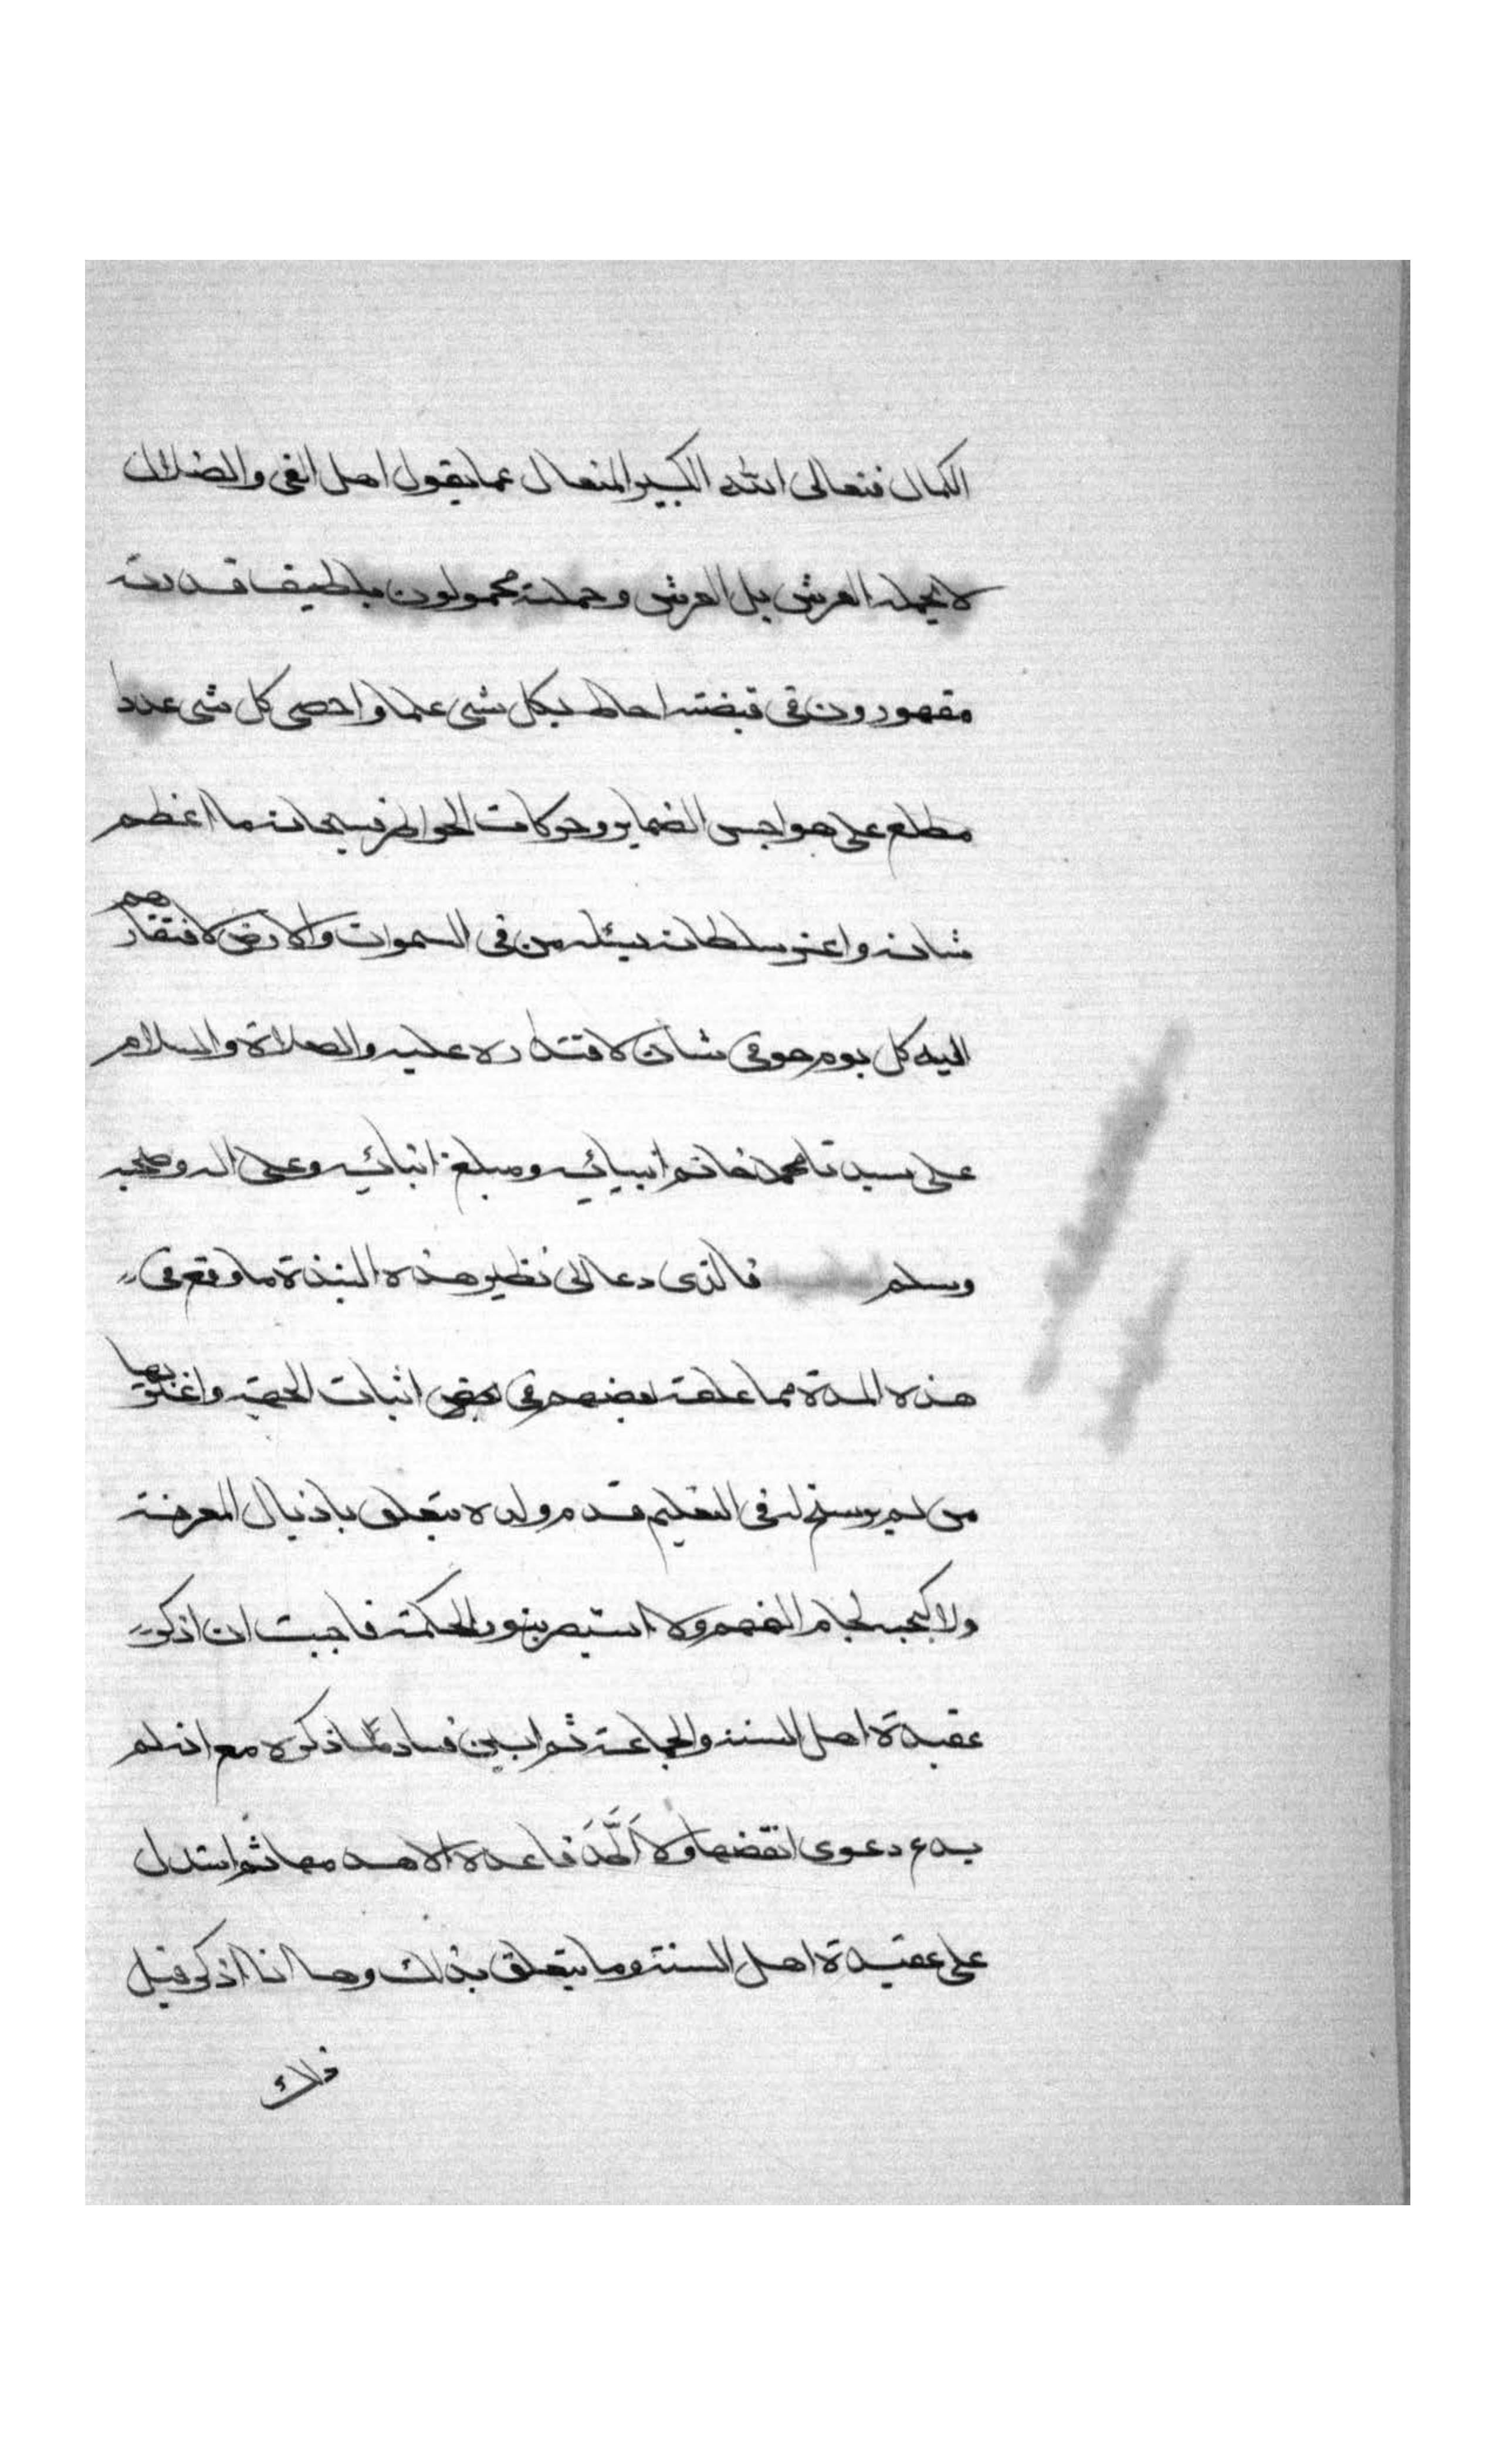 الكمال فتعالى الله الكبير المتعال عما يقول اهل الغى والضلال
لا يحمله العرش بل العرش وحملته محمولون بلطيف قدرته
مقهورون فى قبضته احاط بكل شى علما واحصى كل شى عددا
مطلع على هواجس الضماير وحركات الخواطر فسبحانه ما اعظم
شانه واعز سلطانه يسئله من فى السموات والارض لافتقارهم
اليه كل يوم هو فى شان لاقتداره عليه والصلاة والسلام
على سيدنا محمد خاتم انبيائه ومبلغ انبائه وعلى اله وصحبه
وسلم فالذى دعا الى نظير هذه النبذة ما وقع فى
هذه المدة مما علقه بعضهم فى بعض اثبات الجهة واغتر بها
من لم يرسخ له فى التعليم قدم ولم يتعلق باذيال المعرفة
ولا كبحه لجام الفهم ولا استبصر بنور الحكمة فاحببت ان اذكر
عقيدة اهل السنة والجماعة ثم ابين فساد ما ذكره مع انه لم
يدع دعوى الا نقضها ولا اطد قاعدة الا هدمها ثم استدل
على عقيدة اهل السنة وما يتعلق بذلك وها انا اذكر قبل
ذلك